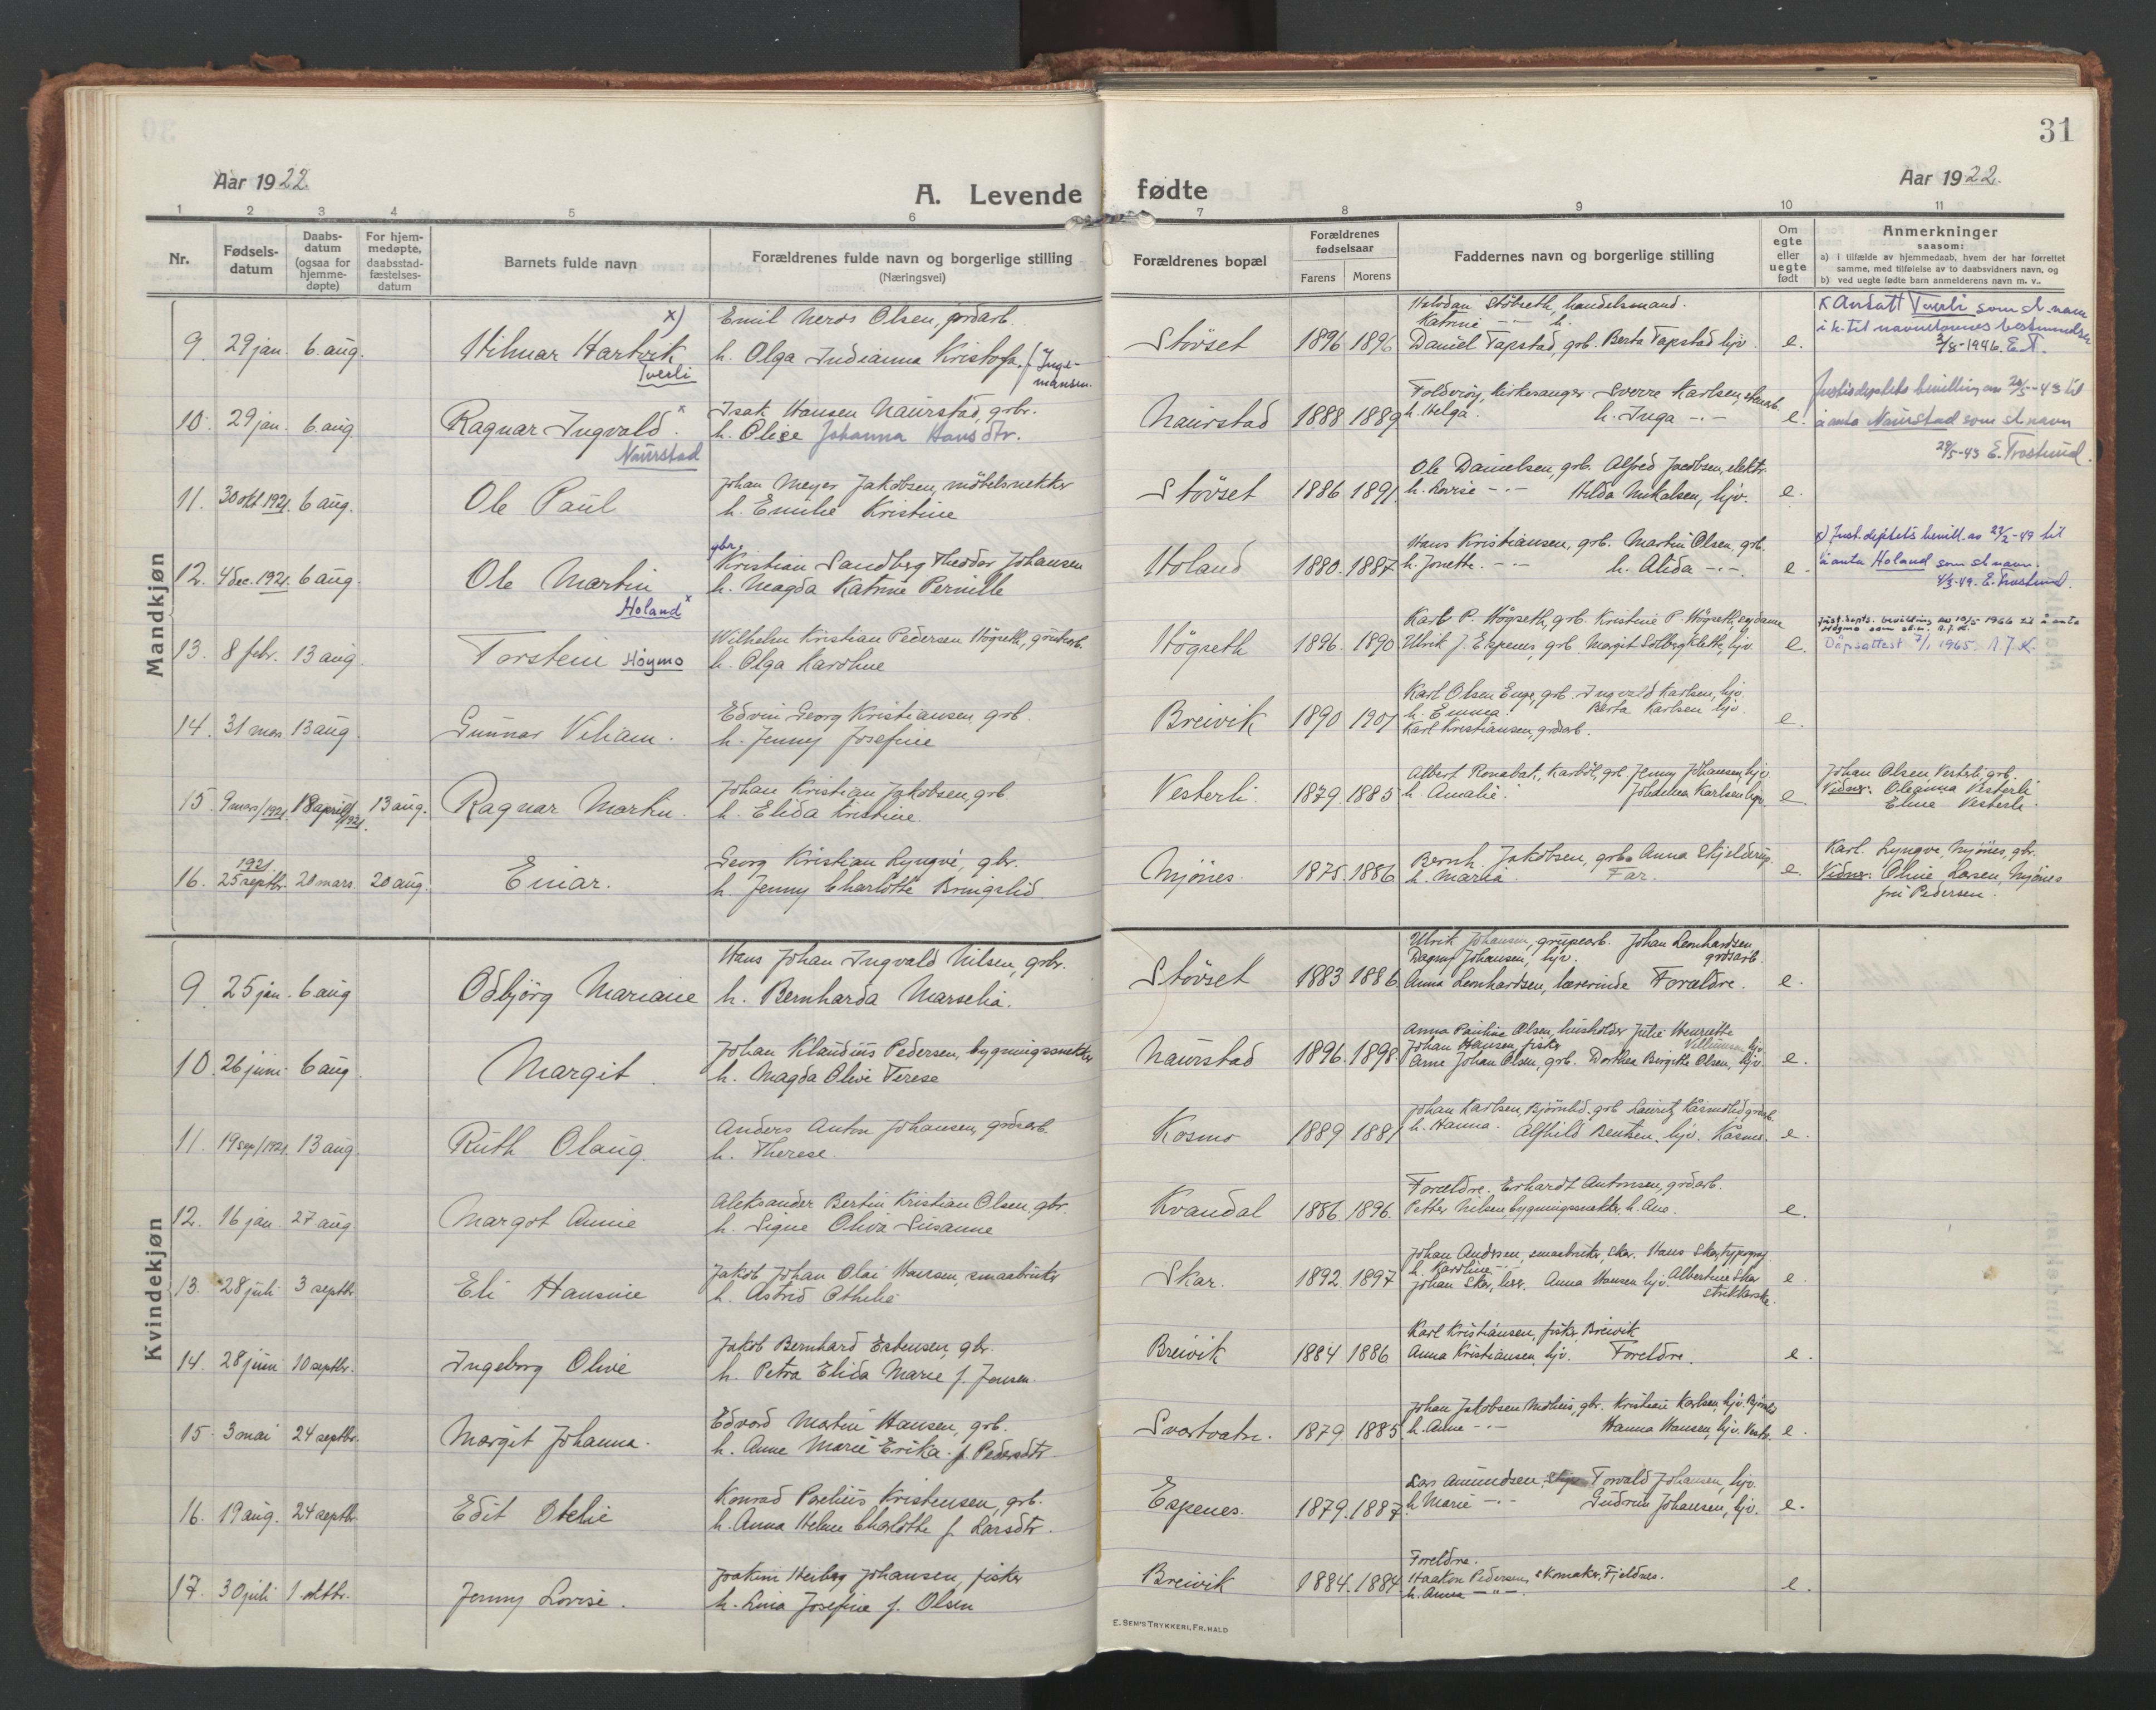 31
Aar 1922.
A. Levende
fødte
Aar 1922.
1 2 3 4 5 6 7 8 9 10 11
Nr.
Fødsels-
datum
Daabs-
datum
(ogsaa for
hjemme-
døpte)
For hjem-
medøpte,
daabsstad-
fæstelses-
datum
Barnets fulde navn
Forældrenes fulde navn og borgerlige stilling
(Næringsvei)
Forældrenes bopæl
Forældrenes
fødselsaar
Farens Morens
Faddernes navn og borgerlige stilling
Om
egte
eller
uegte
født
Anmerkninger
saasom:
a) i tilfælde av hjemmedaab, hvem der har forrettet
samme, med tilføielse av to daabsvidners navn, og
b) ved uegte fødte barn anmelderens navn m. v..
Mandkjøn
9. 29 jan. 6. aug. Hilmar Hartvik x)
Tverli
Emil Olsen, grdarb.
h. Olga Indianna Kristofa. f. Inge-
mansen.
Støvset 1896 1896
Halvdan Støvseth, handelsmand.
Katrine -"- h.
Daniel Tapstad, grb. Berta Tapstad hjv. e.
x Antatt Tverli som sl. navn
i h. til navnelovens bestemmelse
3/8-1946. E.T.
10. 29 jan. 6. aug. Ragnar Ingvald. x
Naurstad
Isak Hansen Naurstad, grbr.
h. Olise Johanna Hansdtr.
Naurstad 1888 1889
Foldvøy, kirkesanger Sverre Karlsen,
h. Helga. h. Inga -.- e.
Justisdeptets bevilling av 20/5-43 til
å anta Naurstad som sl. navn
29/5-43 E. Trostrud.
11. 30 okt. 1921. 6 aug. Ole Paul
Johan Meyer Jakobsen, møbelsnekker
h. Emilie Kristine
Støvset 1886. 1891.
Ole Danielsen, grb. Alfred Jacobsen, elektr.
h. Lovise -.- Hilda Mikalsen, hjv. e.
12. 4 dec. 1921. 6 aug. Ole Martin
Holand x
gbr.
Kristian Sandberg Theodor Johansen
h. Magda Katrine Pernille
Holand 1880. 1887.
Hans Kristiansen, grb. Martin Olsen, grb.
h. Jonette. -.- h. Alida -.- e.
x) Just.deptets bevill. av 23/2-49 til
å anta Holand som sl. navn.
4/3-49. E. Trostrud.
13. 8 febr. 13 aug. Torstein Høgmo
Wilhelm Kristian Pedersen Høgseth, grubearb.
h. Olga Karoline
Høgseth 1896. 1890
Karl P. Høgseth, grb. Kristine P. Høgseth,
Ulrik J. Espenes, grb. Margit Solberg Klette, hjv. e.
Just.depts. bevilling av 10/5 1966 til å anta
Høgmo som sl.n. A.J.K.
Dåpsattest 7/1 1965. A.J.K.
14. 31 mars 13 aug. Gunnar Viliam.
Edvin Georg Kristiansen, grb.
h. Jenny Josefine
Breivik 1890 1901
Karl Olsen Enge, grb. Ingvald Karlsen, hjv.
h. Emma. Berta Karlsen hjv.
Karl Kristiansen, grdarb. e.
15. 9 mars/1921. 18 april/1921. 13 aug. Ragnar Martin.
Johan Kristian Jakobsen, grb
h. Elida Kristine.
Vesterli 1879. 1885
Albert Karbøl, grb. Jenny Johansen, hjv.
h. Amalie. Johanna Karlsen hjv. e.
Johan Olsen, Vesterli, grb.
Vidner: Oleanna Vesterli
Eline Vesterli.
16. 1921
25 septbr. 20 mars. 20 aug. Einar.
Georg Kristian Lyngve, gbr.
h. Jenny Charlotte Bringslid.
Mjønes. 1875. 1886
Bernh. Jakobsen, grb. Anna Skjelderup.
h. Maria. Far. e.
Karl. Lyngve, Mjønes, gbr.
Vidner: Oline Larsen, Mjønes
fru Pedersen.
Kvindekjøn
9. 25 jan. 6. aug Odbjørg Mariane
Hans Johan Ingvald Nilsen, grbr.
h. Bernharda Marselia.
Støvset 1883 1886
Ulrik Johansen, grubearb. Johan Leonhardsen,
Dagny Johansen, hjv. grdarb.
Anna Leonhardsen, lærerinde Forældre. e.
10. 26 juni. 6 aug. Margit.
Johan Klaudius Pedersen, bygningssnekker
h. Magda Olivi Terese
Naurstad 1896. 1898
Anna Pauline Olsen, husholder Julie Henriette
Johan Hansen fisker Villumsen hjv
Arne Johan Olsen, grb. Dorthea Birgitte Olsen, hjv. e.
11. 19 sep/1921. 13 aug. Ruth Olaug.
Anders Anton Johansen, grdarb.
h. Therese.
Kosmo 1889 1881
Johan Karlsen, Bjørnlid. grb Lauritz Kåsmolid grdarb.
h. Hanna. Alfhild Bentsen. hjv. Kåsmo. e.
12. 16 jan. 27 aug. Margot Annie
Aleksander Bertin Kristian Olsen. gbr.
h. Signe Oliva Susanne
Kvandal 1886. 1896.
Forældre. Erhardt Antonsen, grdarb.
Petter Nilsen, bygningssnekker, h. Ane. e.
13. 28 juli 3 septbr. Eli Hansine
Jakob Johan Olai Hansen, smaabruker
h. Astrid Othelie
Skar. 1892 1897
Johan Andersen, smaabruker, Skar. Hans Skar, typograf
h. Karoline -.-
Johan Skar, Anna Hansen hjv. Albertine Skar
strikkerske. e.
14. 28 juni 10 septbr. Ingeborg Olive
Jakob Bernhard Estensen, gbr.
h. Petra Elida Marie f. Jensen.
Breivik 1884 1886
Karl Kristiansen, fisker, Breivik
Anna Kristiansen, hjv. Foreldre. e.
15. 3 mai 24 septbr. Margit Johanna.
Edvard Martin Hansen, grb.
h. Anne Marie Erika. f. Pedersdtr
Svartvatn. 1879. 1885
Johan Jakobsen gbr. Kristian Karlsen, hjv.
h. Anne -.- Hanna Hansen, hjv. e.
16. 19 aug. 24 septbr. Edit Otelie
Konrad Parelius Kristensen, grb.
h. Anna Helene Charlotte f. Larsdtr.
Espenes. 1879. 1887.
Lars Amundsen, Torvald Johansen, hjv.
h. Marie -.- Gudrun Johansen, hjv. e.
17. 30 juli 1 oktbr. Jenny Lovise.
Joakim Heiberg Johansen, fisker
h. Lina Josefine f. Olsen
Breivik 1884. 1884.
Foreldre.
Haakon Pedersen, skomaker, Fjeldnes.
h. Anna -"-. e.
E. SEM'S TRYKKERI, FR.HALD